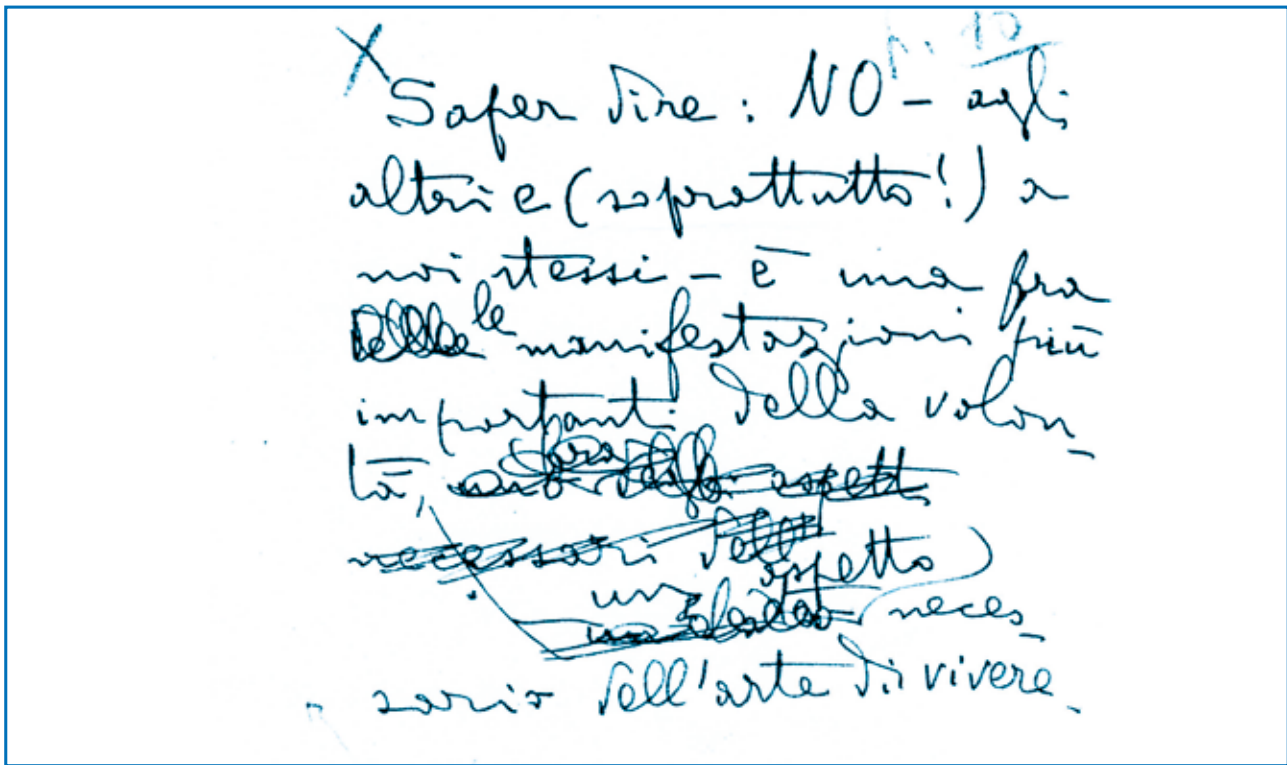 p. 10
Saper dire: NO – agli
altri e (soprattutto!) a
noi stessi – è una fra
le manifestazioni più
importanti della volon-
tà,
un aspetto
neces-
sario dell'arte di vivere.